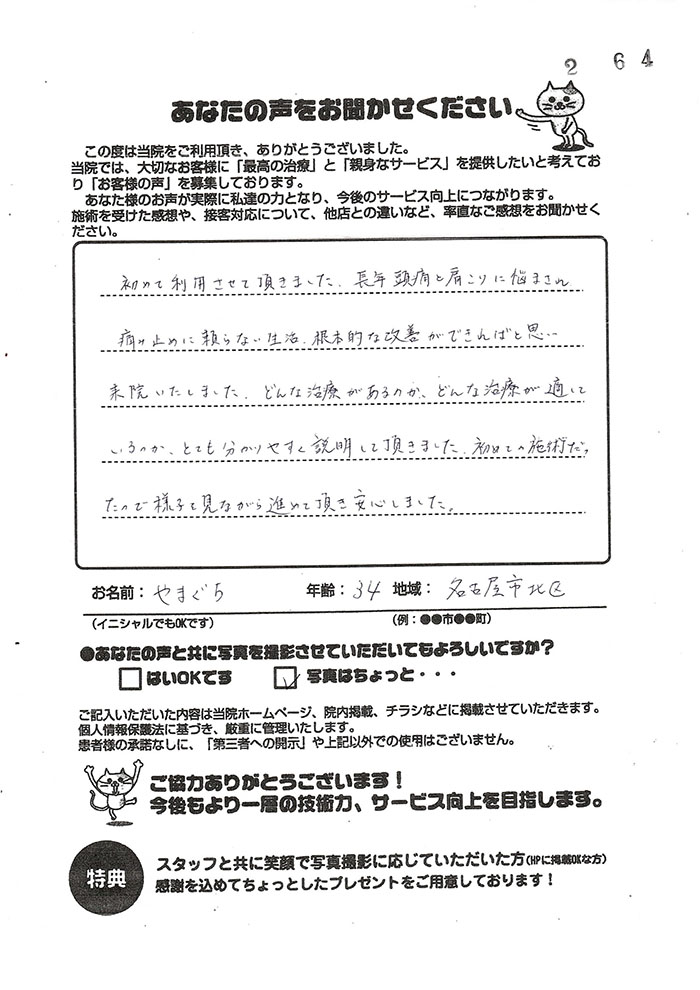 2 64
あなたの声をお聞かせください
この度は当院をご利用頂き、ありがとうございました。
当院では、大切なお客様に「最高の治療」と「親身なサービス」を提供したいと考えてお
り「お客様の声」を募集しております。
あなた様のお声が実際に私達の力となり、今後のサービス向上につながります。
施術を受けた感想や、接客対応について、他店との違いなど、率直なご感想をお聞かせく
ださい。
初めて利用させて頂きました。長年頭痛と肩こりに悩まされ
痛み止めに頼らない生活、根本的な改善ができればと思い
来院いたしました。どんな治療があるのか、どんな治療が適して
いるのか、とても分かりやすく説明して頂きました。初めての施術だっ
たので様子を見ながら進めて頂き安心しました。
お名前：やまぐち 年齢：34 地域：名古屋市北区
（イニシャルでもOKです） （例：●●市●●町）
●あなたの声と共に写真を撮影させていただいてもよろしいですか？
はいOKです 写真はちょっと・・・
ご記入いただいた内容は当院ホームページ、院内掲載、チラシなどに掲載させていただきます。
個人情報保護法に基づき、厳重に管理いたします。
患者様の承諾なしに、「第三者への開示」や上記以外での使用はございません。
ご協力ありがとうございます！
今後もより一層の技術力、サービス向上を目指します。
特典
スタッフと共に笑顔で写真撮影に応じていただいた方(HPに掲載OKな方)
感謝を込めてちょっとしたプレゼントをご用意しております！